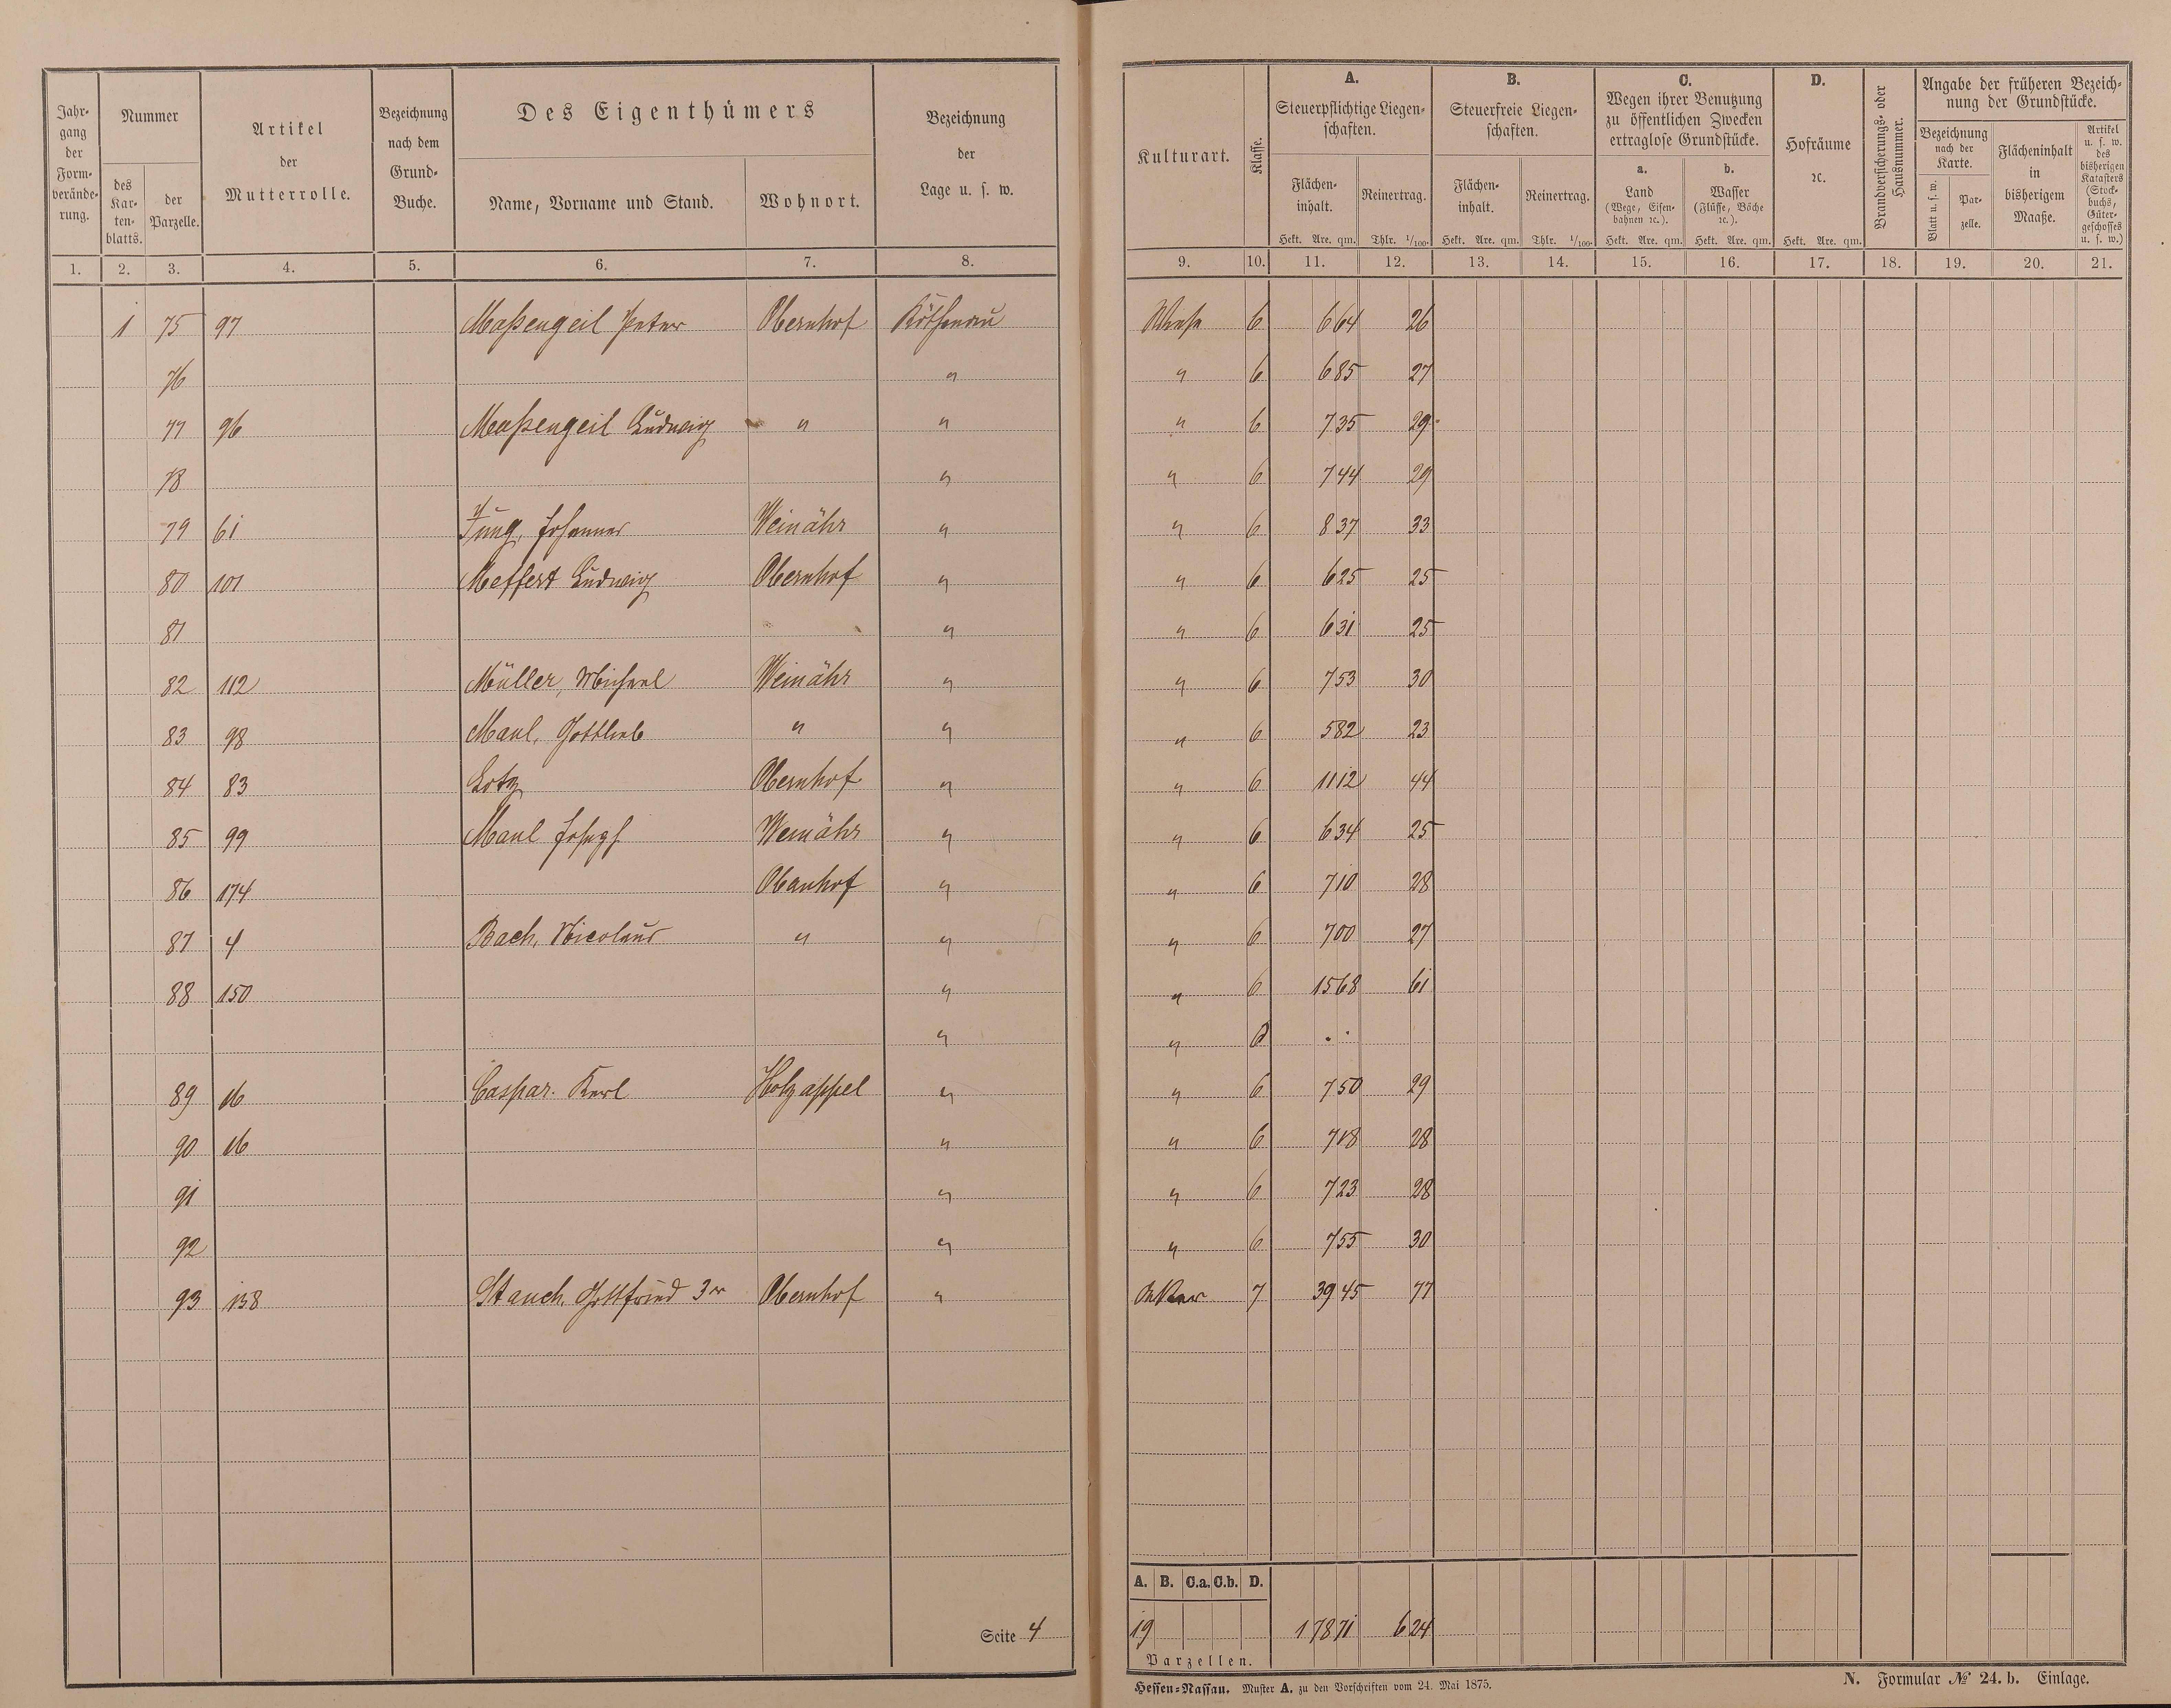 Jahrgang der Formveränderung.
Nummer
des Kartenblatts.
der Parzelle.
Artikel der Mutterrolle.
Bezeichnung nach dem Grund-Buche.
Des Eigenthümers
Name, Vorname und Stand.
Wohnort.
Bezeichnung der Lage u. s. w.
Kulturart.
Klasse.
A.
Steuerpflichtige Liegenschaften.
Flächeninhalt.
Hekt. Are. qm.
Reinertrag.
Thlr. 1/100.
B.
Steuerfreie Liegenschaften.
Flächeninhalt.
Hekt. Are. qm.
Reinertrag.
Thlr. 1/100.
C.
Wegen ihrer Benutzung zu öffentlichen Zwecken ertraglose Grundstücke.
a.
Land
(Wege, Eisenbahnen ꝛc.).
Hekt. Are. qm.
b.
Wasser
(Flüsse, Bäche ꝛc.).
Hekt. Are. qm.
D.
Hofräume ꝛc.
Hekt. Are. qm.
Brandversicherungs- oder Hausnummer.
Angabe der früheren Bezeichnung der Grundstücke.
Bezeichnung nach der Karte.
Blatt u. s. w.
Parzelle.
Flächeninhalt in bisherigem Maaße.
Artikel u. s. w. des bisherigen Katasters (Stockbuchs, Gütergeschosses u. s. w.)
1. 2. 3. 4. 5. 6. 7. 8. 9. 10. 11. 12. 13. 14. 15. 16. 17. 18. 19. 20. 21.
1 75 97 Maßengeil Peter Obernhof Köthenau Wiese 6 664 26
76 " " 6 685 27
77 96 Maßengeil Ludwig " " " 6 735 29
78 " " 6 744 29
79 61 Jung, Johannes Weinähr " " 6 837 33
80 101 Meffert Ludwig Obernhof " " 6 625 25
81 " " 6 631 25
82 112 Müller, Michael Weinähr " " 6 753 30
83 98 Maul, Gottlieb " " " 6 582 23
84 83 Lotz Obernhof " " 6 1112 44
85 99 Maul Joseph Weinähr " " 6 634 25
86 174 Obernhof " " 6 710 28
87 4 Bach, Nicolaus " " " 6 700 27
88 150 " " 6 1568 61
" "
89 16 Caspar. Karl Holzappel " " 6 750 29
90 16 " " 6 718 28
91 " " 6 723 28
92 " " 6 755 30
93 138 Stauch, Gottfried 3er Obernhof " Acker 7 3945 77
Seite 4
A. B. C.a. C.b. D.
19 17871 624
Parzellen.
Hessen-Nassau. Muster A. zu den Vorschriften vom 24. Mai 1875.
N. Formular № 24. b. Einlage.